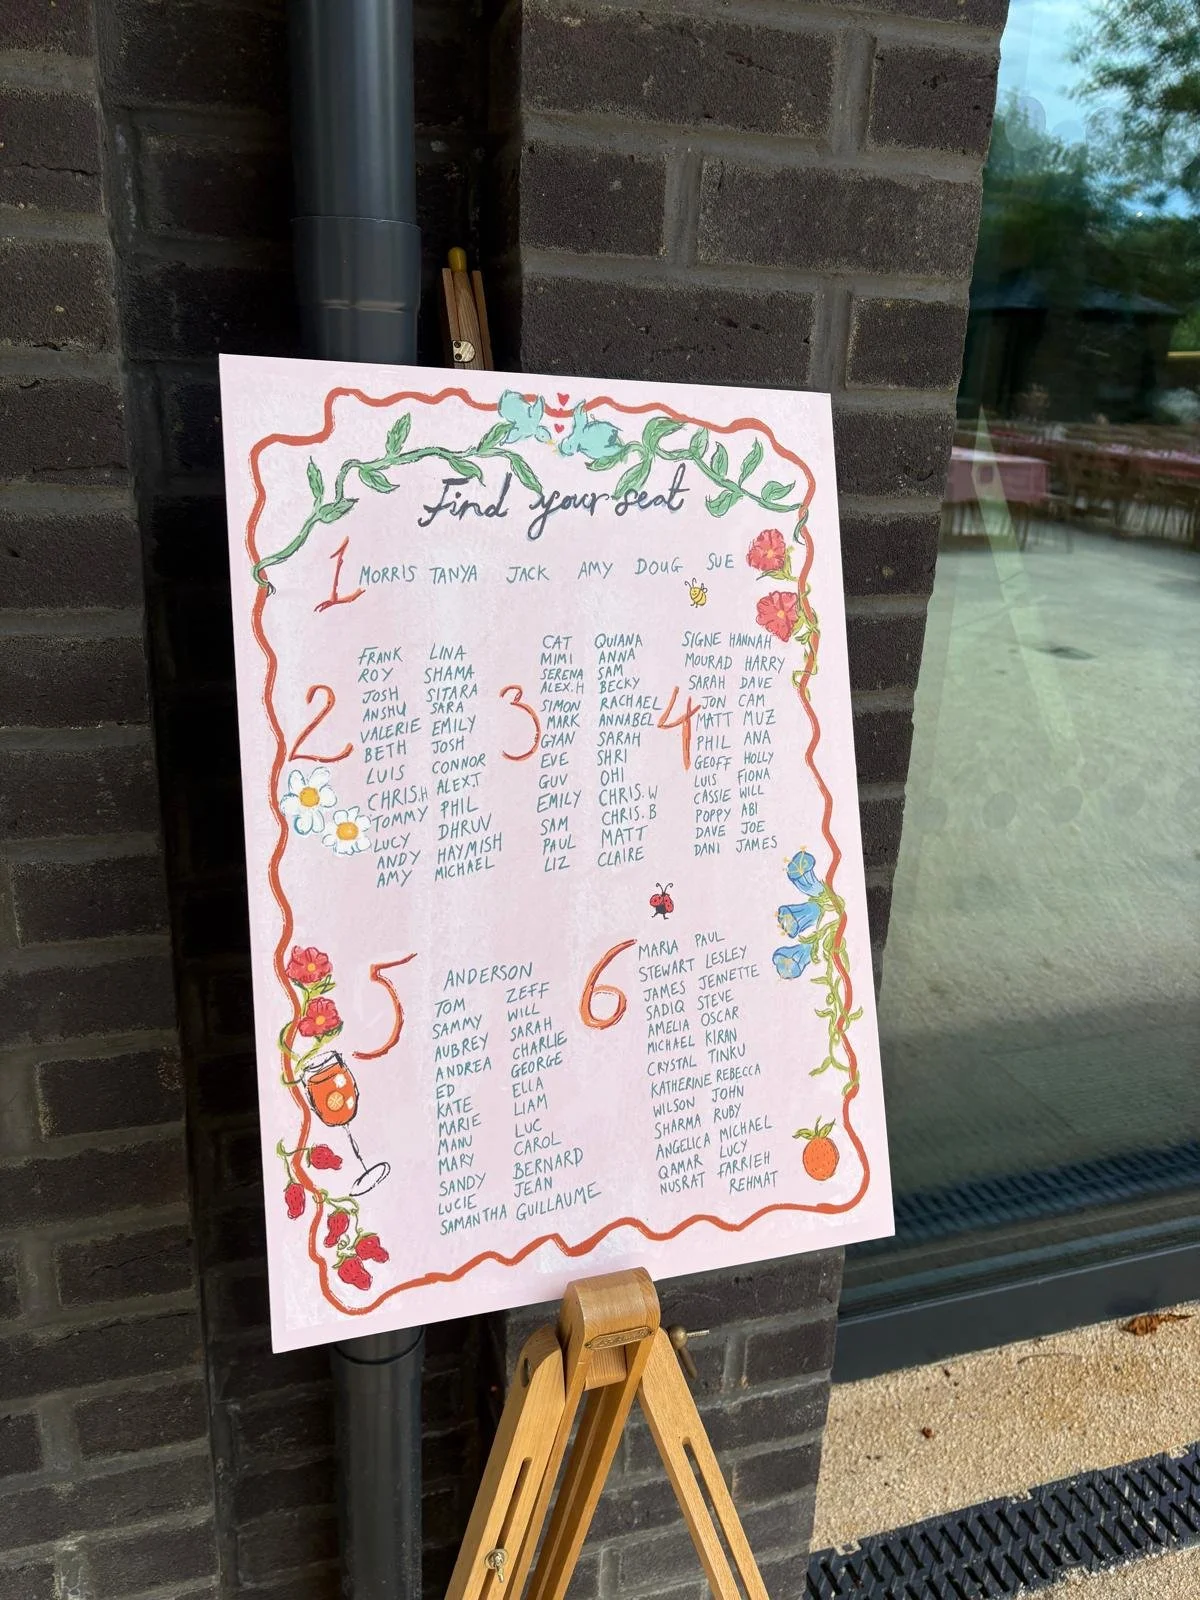 Find your seat
1 MORRIS TANYA JACK AMY DOUG SUE
2
FRANK LINA
ROY SHAMA
JOSH SITARA
ANSHU SARA
VALERIE EMILY
BETH JOSH
LUIS CONNOR
CHRIS.H ALEX.T
TOMMY PHIL
LUCY DHRUV
ANDY HAYMISH
AMY MICHAEL
3
CAT QUIANA
MIMI ANNA
SERENA SAM
ALEX.H BECKY
SIMON RACHAEL
MARK ANNABEL
GYAN SARAH
EVE SHRI
GUV OHI
EMILY CHRIS.W
SAM CHRIS.B
PAUL MATT
LIZ CLAIRE
4
SIGNE HANNAH
MOURAD HARRY
SARAH DAVE
JON CAM
MATT MUZ
PHIL ANA
GEOFF HOLLY
LUIS FIONA
CASSIE WILL
POPPY ABI
DAVE JOE
DANI JAMES
5
ANDERSON
TOM ZEFF
SAMMY WILL
AUBREY SARAH
ANDREA CHARLIE
ED GEORGE
KATE ELLA
MARIE LIAM
MANU LUC
MARY CAROL
SANDY BERNARD
LUCIE JEAN
SAMANTHA GUILLAUME
6
MARIA PAUL
STEWART LESLEY
JAMES JEANETTE
SADIQ STEVE
AMELIA OSCAR
MICHAEL KIRAN
CRYSTAL TINKU
KATHERINE REBECCA
WILSON JOHN
SHARMA RUBY
ANGELICA MICHAEL
QAMAR LUCY
NUSRAT FARRIEH
REHMAT